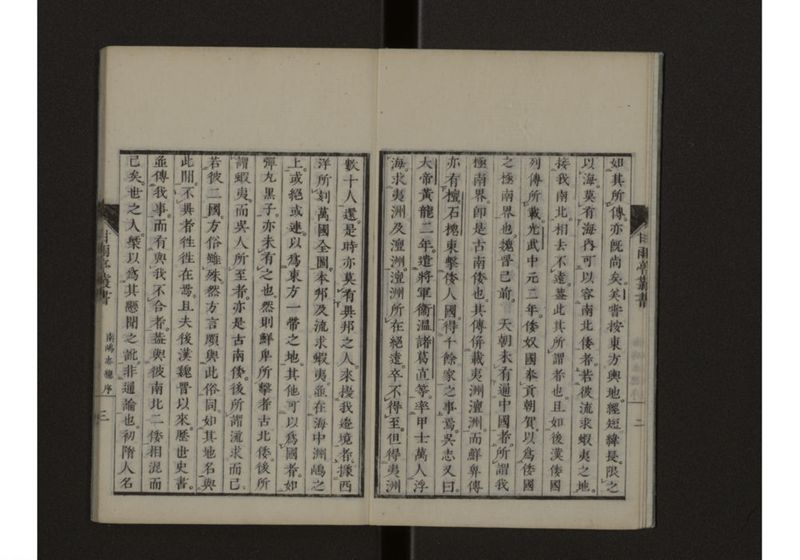 如其所傳亦既尚矣美嘗按東方輿地經短緯長限之
以海莫有海內可以容南北倭者若彼流求蝦夷之地
接我南北相去不遠蓋此其所謂者也且如後漢倭國
列傳所載光武中元二年倭奴國奉貢朝賀以為倭國
之極南界也據晉已前天朝未有通中國者所謂我
極南界即是古南倭也其傳併載夷洲澶洲而鮮卑傳
亦有檀石槐東擊倭人國得千餘家之事焉吳志又曰
大帝黃龍二年遣將軍衞溫諸葛直等率甲士萬人浮
海求夷洲及澶洲澶洲所在絕遠卒不得至但得夷洲
甘雨亭叢書
二
數十人還是時亦莫有異邦之人來擾我邊境者據西
洋所刻萬國全圖本邦及流求蝦夷並在海中洲嶼之
上或絕或連以為東方一帶之地其他可以為國者如
彈丸黑子亦未有之也然則鮮卑所擊者古北倭後所
謂蝦夷而吳人所至者亦是古南倭後所謂流求而已
若彼二國方俗雖殊然方言頗與此俗同如其地名與
此間不異者往往在焉且夫後漢魏晉以來歷世史書
並傳我事而有與我不合者蓋與彼南北二倭相混而
已矣世之人槩以為其懸聞之訛非通論也初隋人名
甘雨亭叢書
南嶋志總序
三